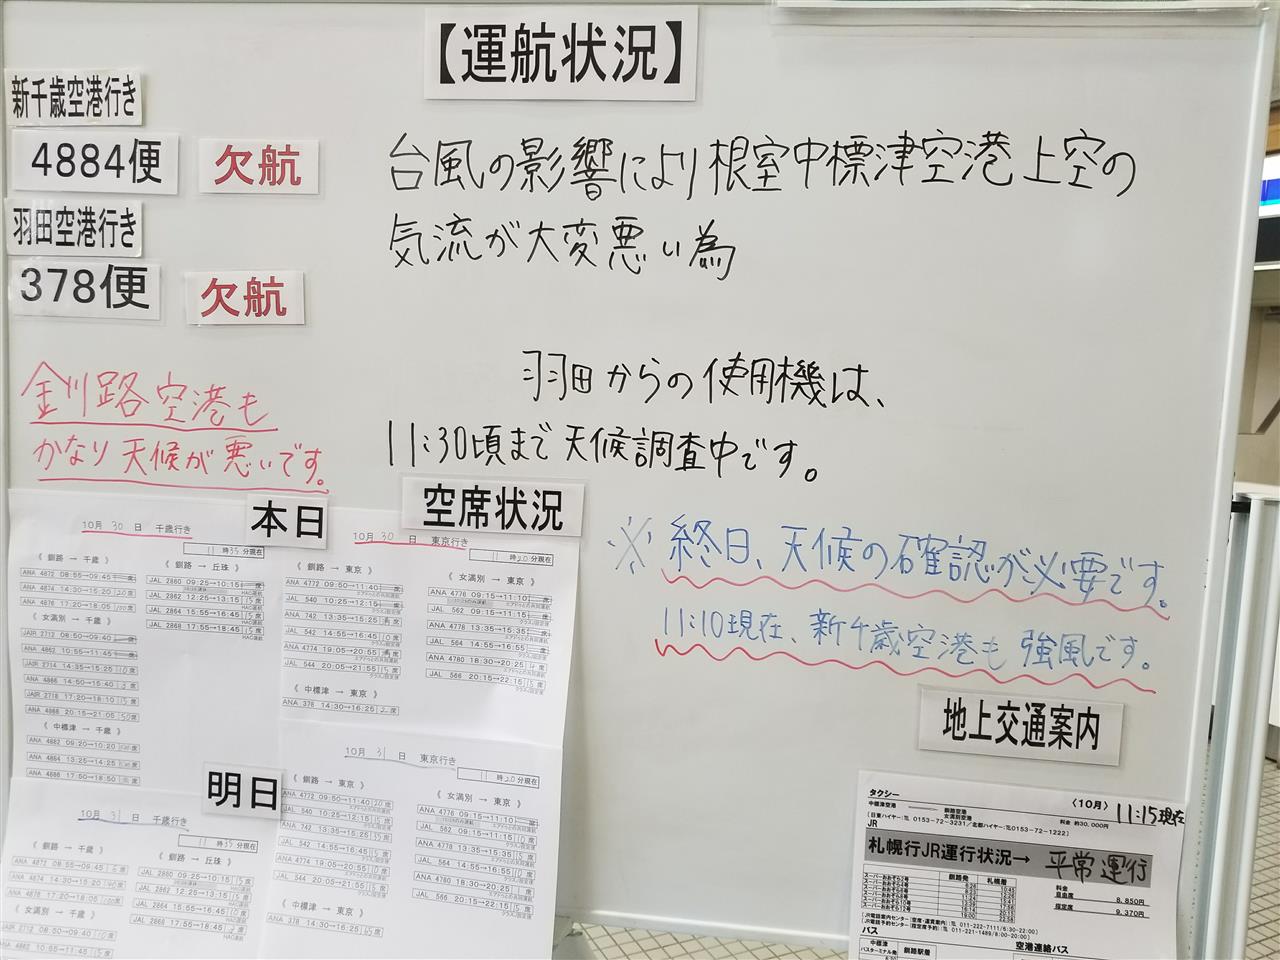 【運航状況】
新千歳空港行き
4884便 欠航
羽田空港行き
378便 欠航
台風の影響により根室中標津空港上空の
気流が大変悪い為
羽田からの使用機は、
11:30頃まで天候調査中です。
釧路空港も
かなり天候が悪いです。
※終日、天候の確認が必要です。
11:10現在、新千歳空港も強風です。
本日
空席状況
10月 30 日 千歳行き
11時35分現在
《 釧路 → 千歳 》
ANA 4872 08:55→09:45
ANA 4874 14:30→15:20
ANA 4876 17:20→18:05
《 女満別 → 千歳 》
JAIR 2712 08:50→09:40
ANA 4862 10:55→11:45
JAIR 2714 14:35→15:25
ANA 4866 14:50→15:40
JAIR 2718 17:20→18:10
ANA 4868 20:15→21:05
《 中標津 → 千歳 》
ANA 4882 09:20→10:20
ANA 4884 13:25→14:25
ANA 4886 17:50→18:50
《 釧路 → 丘珠 》
JAL 2860 09:25→10:15
JAL 2862 12:25→13:15
JAL 2864 15:55→16:45
JAL 2868 17:55→18:45
10月 30 日 東京行き
11時20分現在
《 釧路 → 東京 》
ANA 4772 09:50→11:40
JAL 540 10:25→12:15
ANA 742 13:35→15:25
JAL 542 14:55→16:45
ANA 4774 19:05→20:55
JAL 544 20:05→21:55
《 中標津 → 東京 》
ANA 378 14:30→16:25
《 女満別 → 東京 》
ANA 4776 09:15→11:10
JAL 562 09:15→11:15
ANA 4778 13:35→15:35
JAL 564 14:55→16:55
ANA 4780 18:30→20:25
JAL 566 20:25→22:15
明日
10月 31 日 千歳行き
11時35分現在
《 釧路 → 千歳 》
ANA 4872 08:55→09:45
ANA 4874 14:30→15:20
ANA 4876 17:20→18:05
《 女満別 → 千歳 》
JAIR 2712 08:50→09:40
《 釧路 → 丘珠 》
JAL 2860 09:25→10:15
JAL 2862 12:25→13:15
JAL 2864 15:55→16:45
JAL 2868 17:55→18:45
10月 31 日 東京行き
11時20分現在
《 釧路 → 東京 》
ANA 4772 09:50→11:40
JAL 540 10:25→12:15
ANA 742 13:35→15:25
JAL 542 14:55→16:45
ANA 4774 19:05→20:55
《 中標津 → 東京 》
ANA 378 14:30→16:25
《 女満別 → 東京 》
ANA 4776 09:15→11:10
地上交通案内
タクシー
〈10月〉 11:15現在
中標津空港
釧路空港
女満別空港
料金 約30,000円
(日東ハイヤー:℡ 0153-72-3231/北都ハイヤー:℡0153-72-1222)
JR
札幌行JR運行状況→ 平常運行
釧路発 札幌着
料金
自由席 8,850円
指定席 9,370円
バス
中標津
バスターミナル発
釧路駅着
空港連絡バス